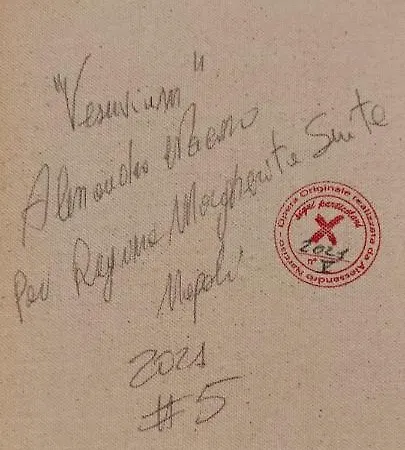 "Vesuvium"
Alessandro Narciso
Per Regina Margherita Suite
Napoli
2021
#5
Opera Originale realizzata da Alessandro Narciso
segni particolari
X
2021
n° V